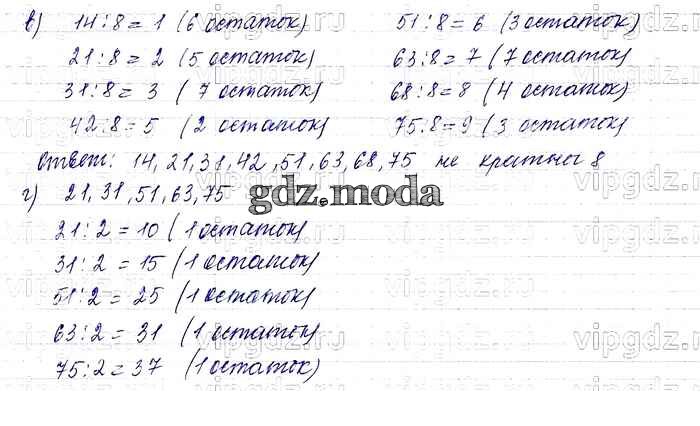 в) 14:8 = 1 (6 остаток)
21:8 = 2 (5 остаток)
31:8 = 3 (7 остаток)
42:8 = 5 (2 остаток)
51:8 = 6 (3 остаток)
63:8 = 7 (7 остаток)
68:8 = 8 (4 остаток)
75:8 = 9 (3 остаток)
Ответ: 14, 21, 31, 42, 51, 63, 68, 75 не кратны 8
г) 21, 31, 51, 63, 75
gdz.moda
21:2 = 10 (1 остаток)
31:2 = 15 (1 остаток)
51:2 = 25 (1 остаток)
63:2 = 31 (1 остаток)
75:2 = 37 (1 остаток)
vipgdz.ru